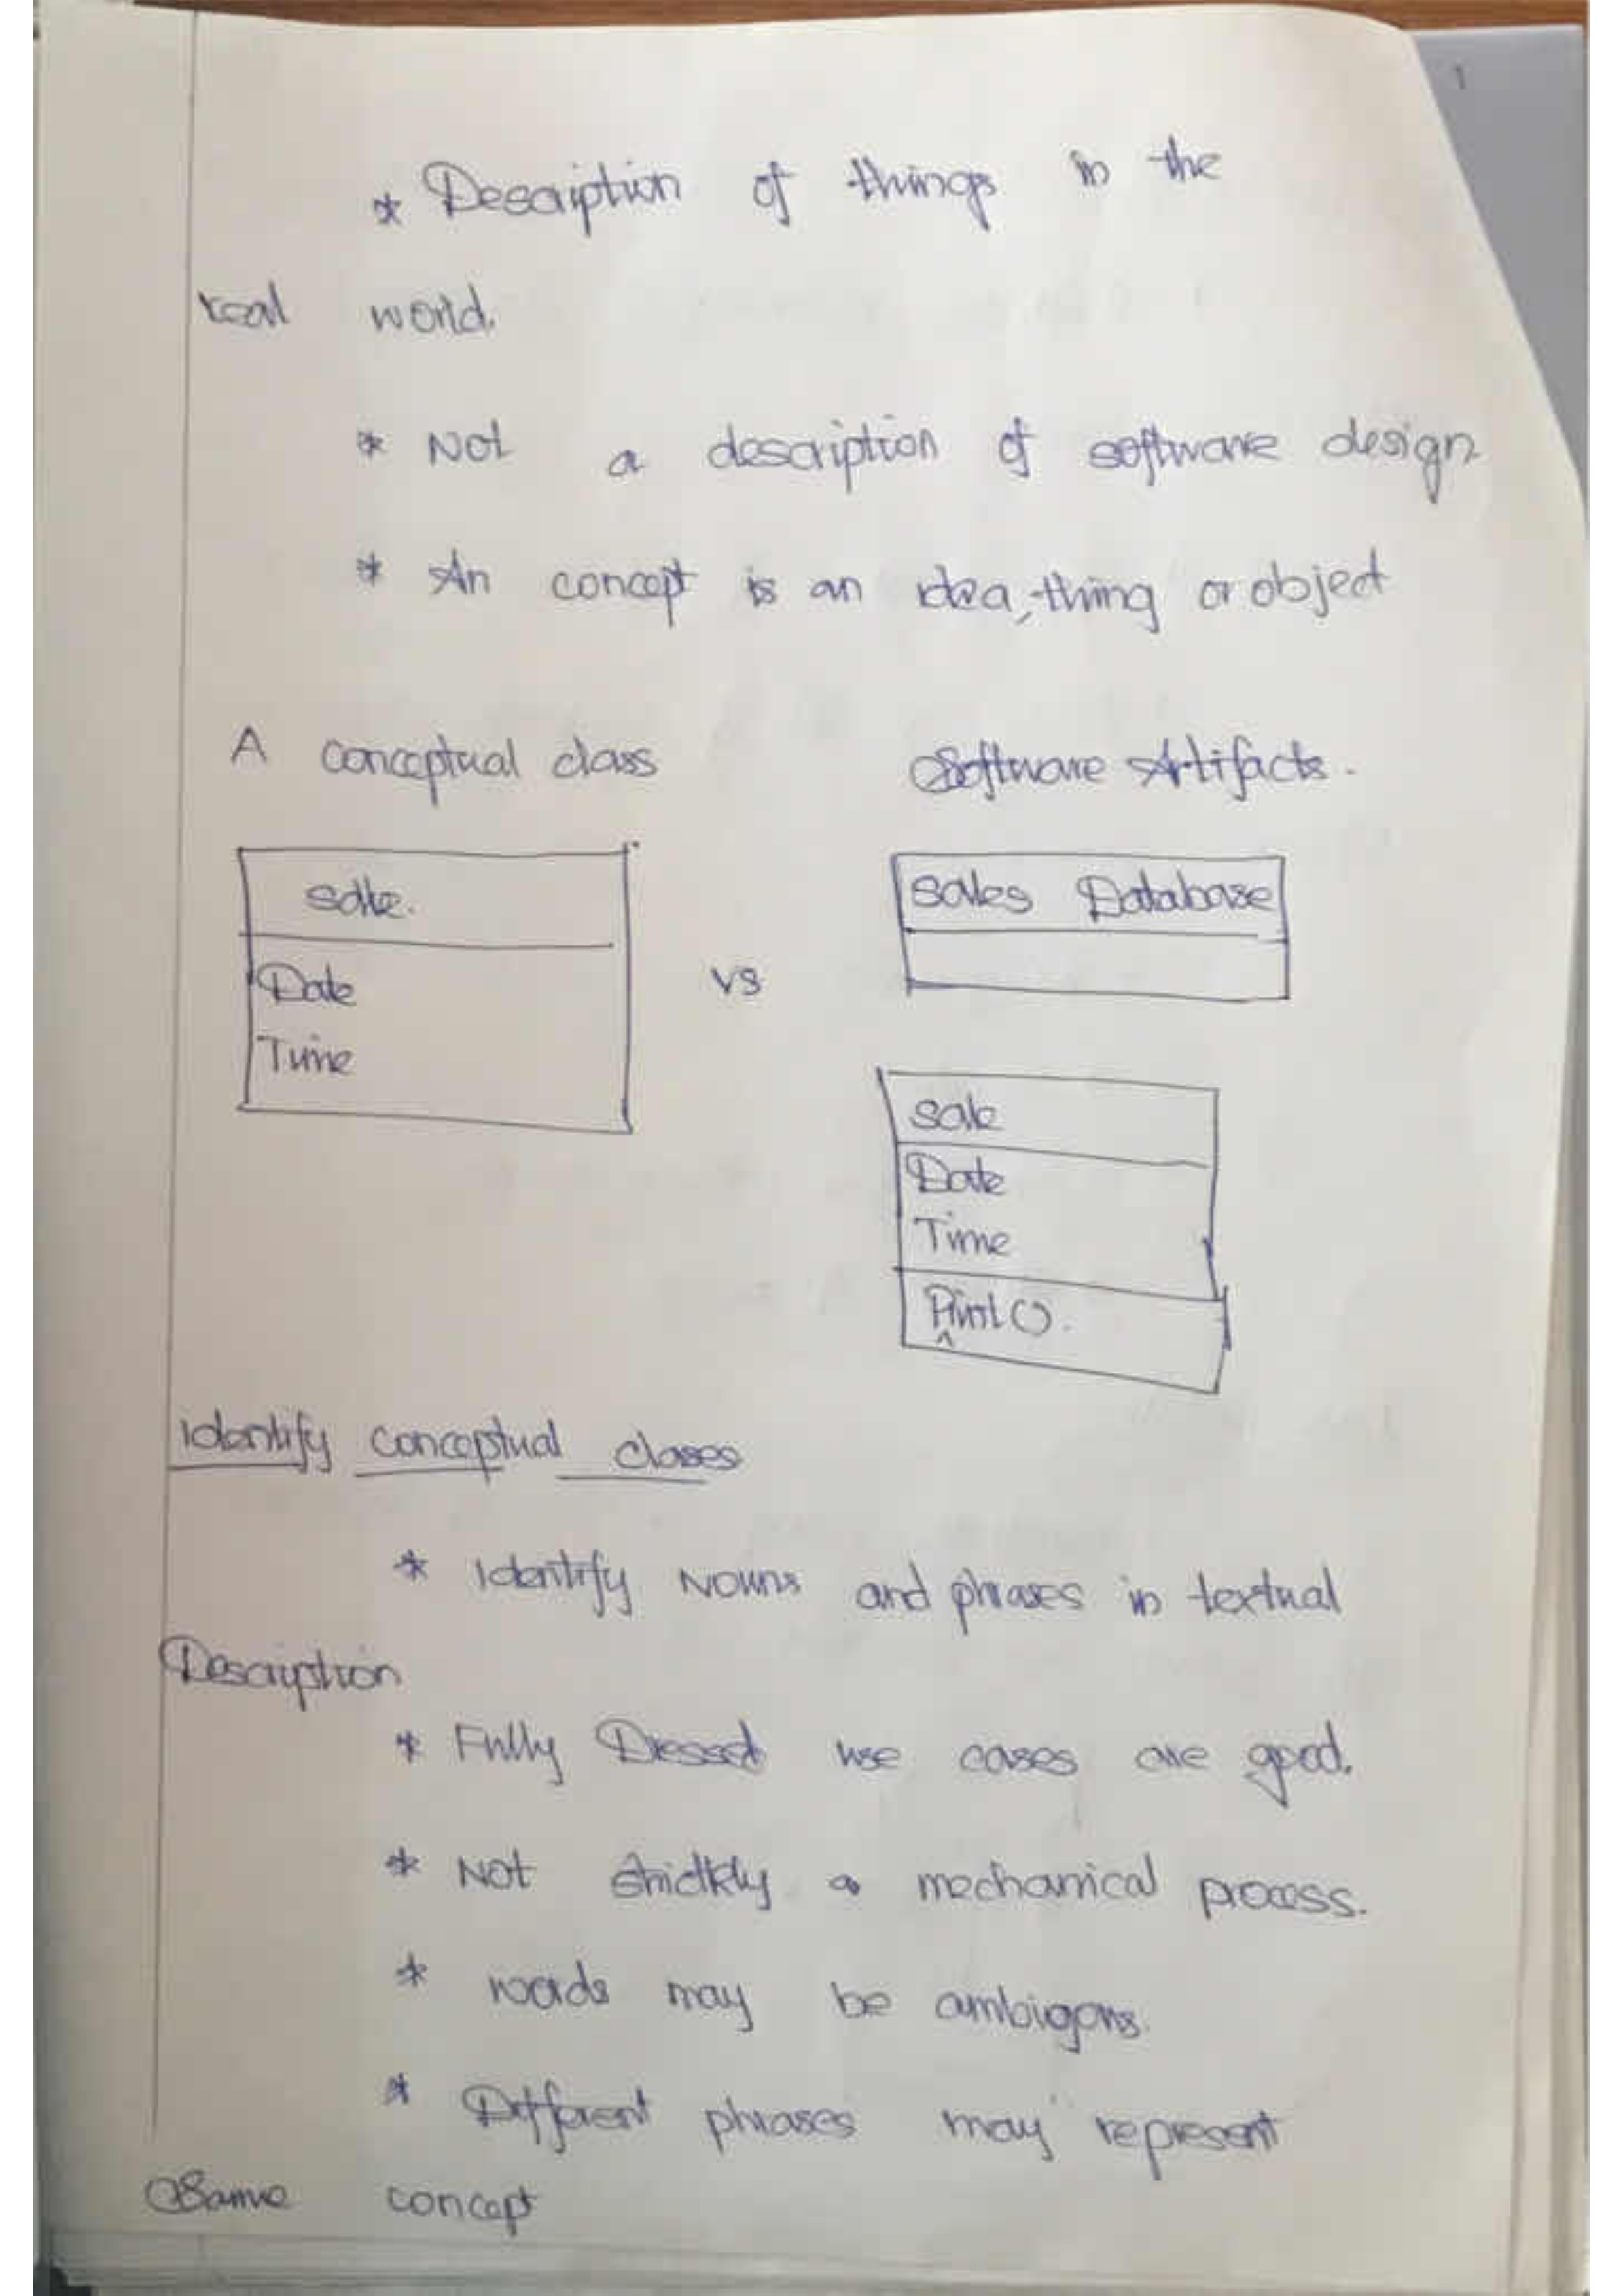 1
* Description of things in the
real world.
* Not a description of software design
* An concept is an idea, thing or object
A conceptual class Software Artifacts.
Sale. Sales Database
Date
vs
Time
Sale
Date
Time
Print ().
Identify conceptual clases
* Identify Nouns and phrases in textual
Description
* Fully Dressed use cases are good.
* Not strictkly a mechanical process.
* words may be ambigous.
* Different phrases may represent
Same concept